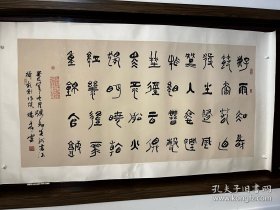 好雨知時
節當春乃
發生隨風
潛入夜潤
物細無聲
野徑雲俱
黑江船火
獨明曉看
紅濕處花
重錦官城
孔夫子旧书网